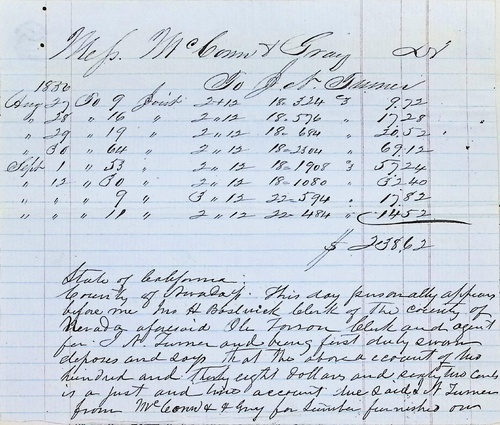 Mess. McConn & Gray Dr
1856 To J. A. Turner
Aug 27 To 9 Joist 2 " 12 18 = 324 " 3 9.72
" 28 " 16 " 2 " 12 18 = 576 " 17.28
" 29 " 19 " 2 " 12 18 = 684 " 20.52
" 30 " 64 " 2 " 12 18 = 2304 " 69.12
Sept 1 " 53 " 2 " 12 18 = 1908 " 3 57.24
" 12 " 30 " 2 " 12 18 = 1080 " 32.40
" " " 9 " 3 " 12 22 = 594 " 17.82
" " " 11 " 2 " 12 22 = 484 " 14.52
$ 238.62
State of California
County of Nevada ss. This day personally appears
before me H Bostwick Clerk of the county of
Nevada aforesaid Clerk and agent
for J A Turner and being first duly sworn
deposes and says that the above account of two
hundred and thirty eight dollars and sixty two cents
is a just and true account due said J A Turner
from McConn & Gray for lumber furnished on